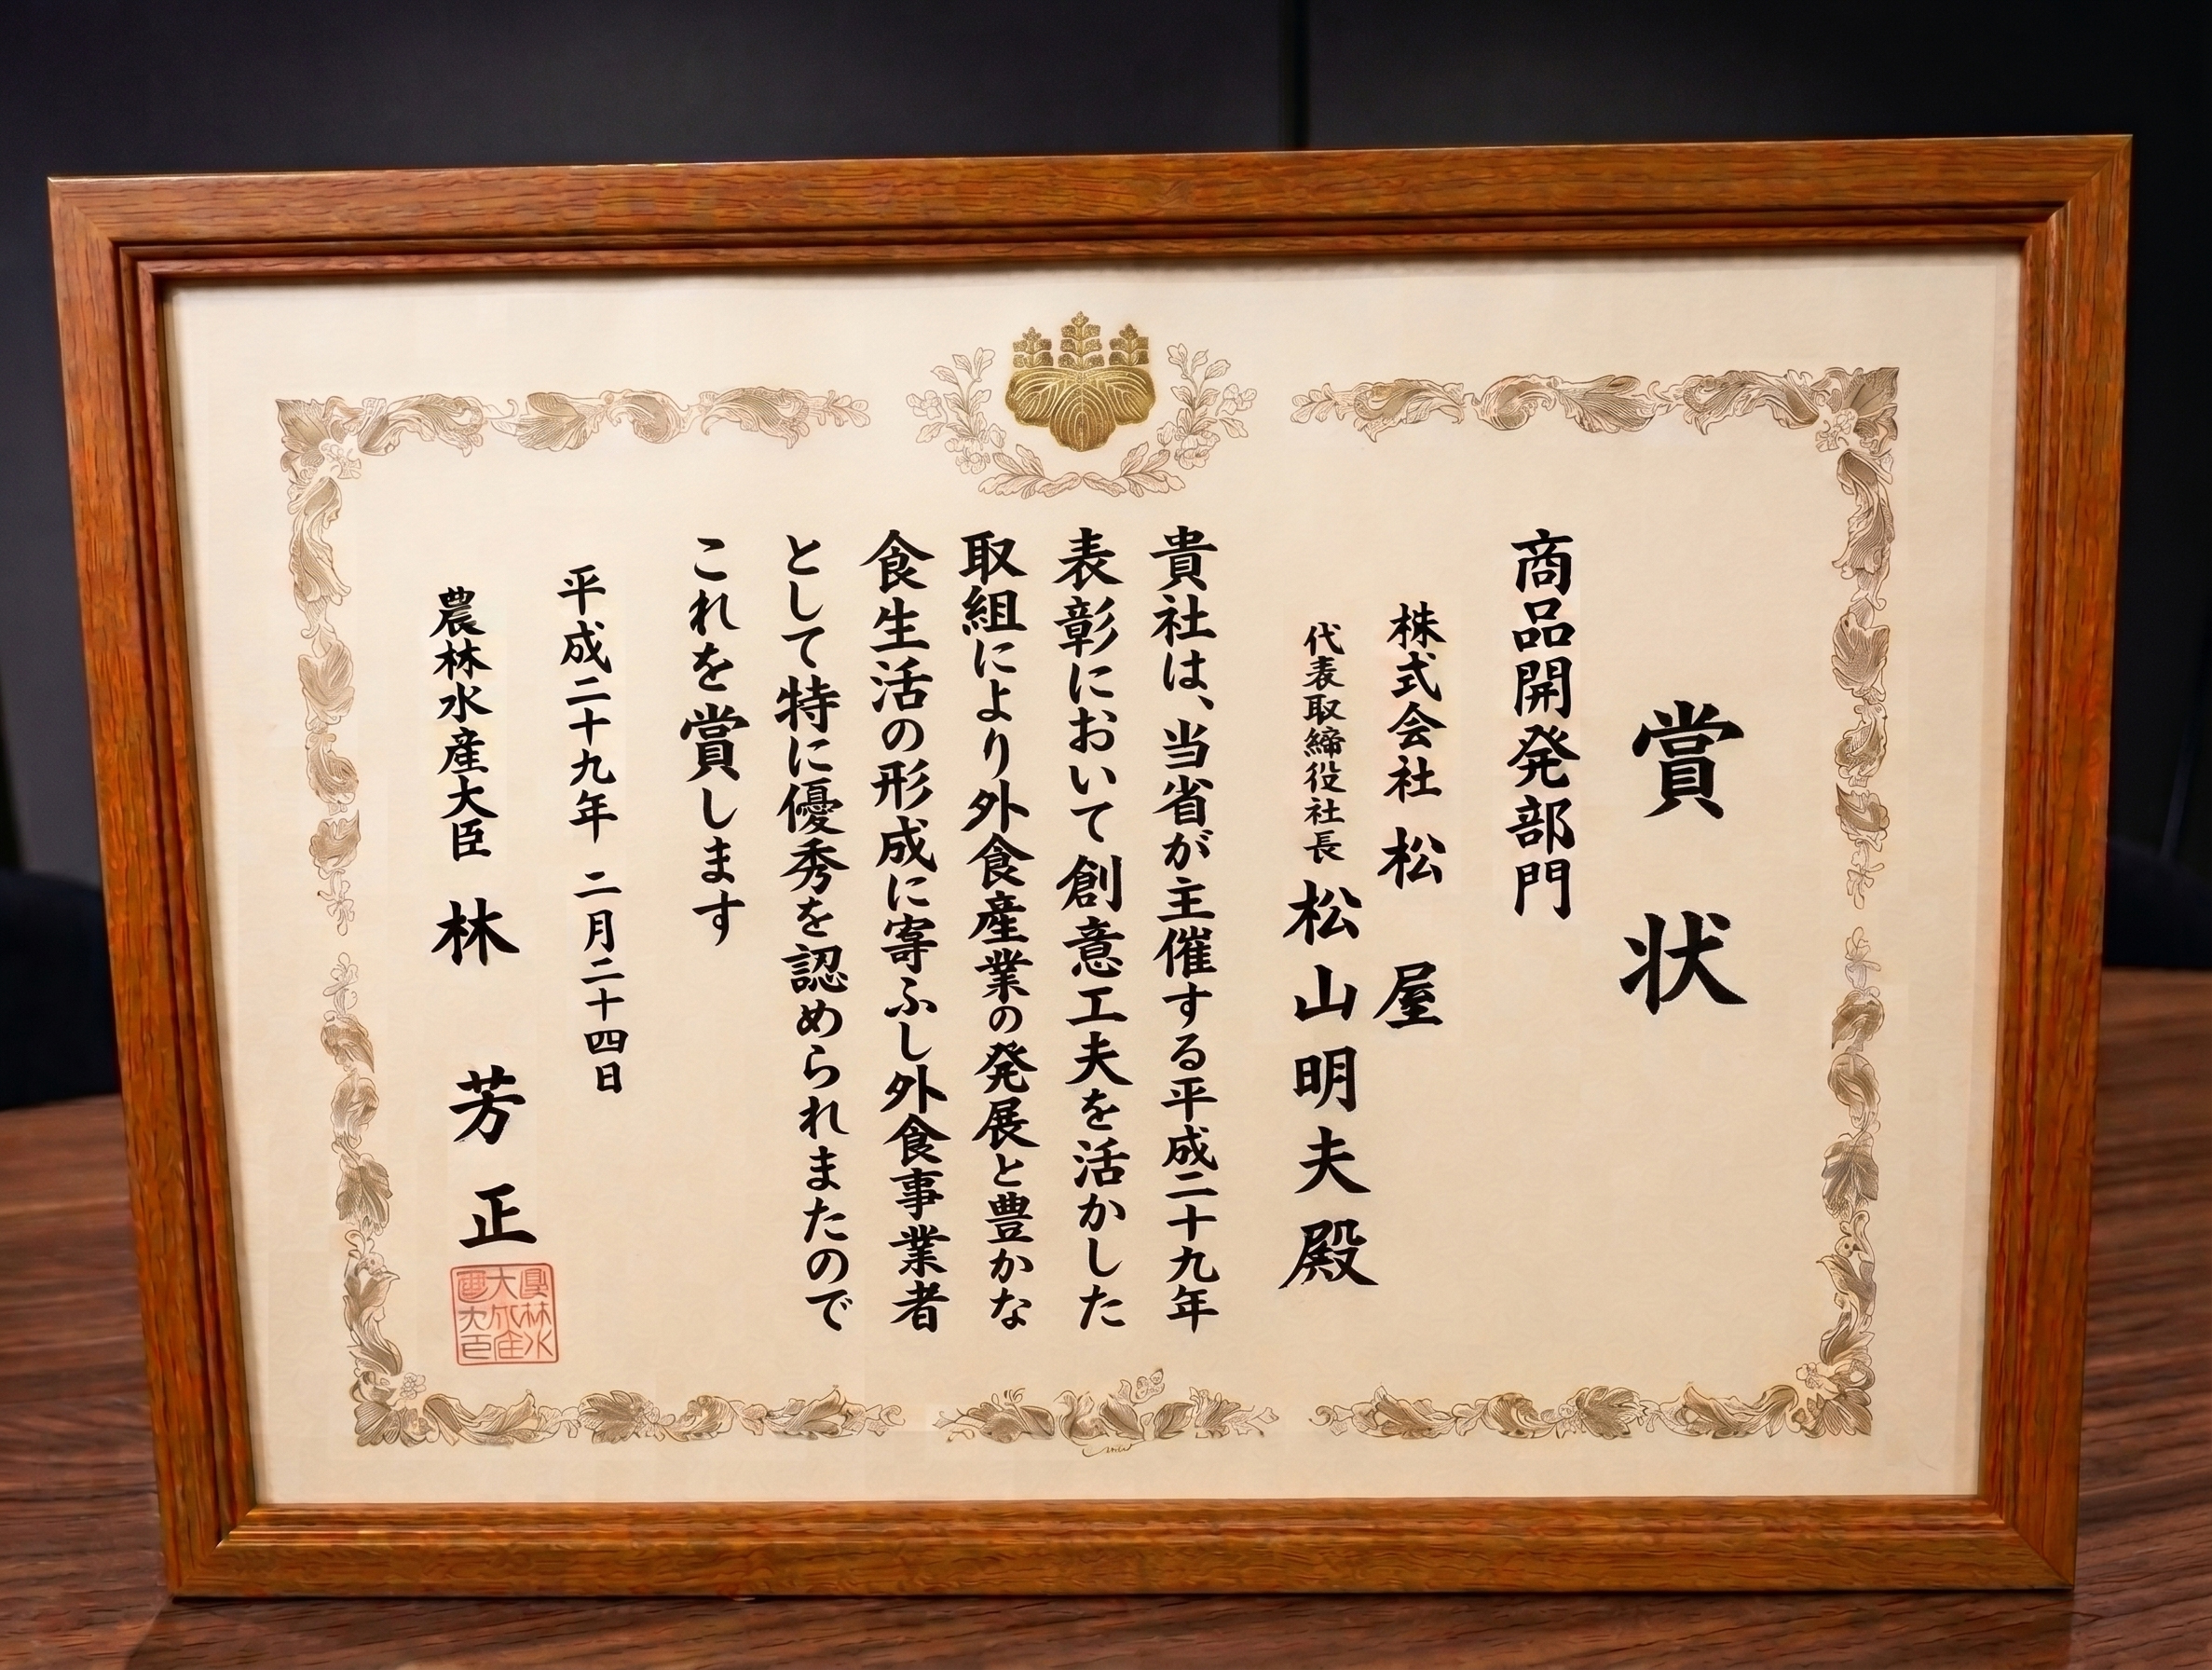 賞状
商品開発部門
株式会社 松屋
代表取締役社長 松山明夫殿
貴社は、当省が主催する平成二十九年
表彰において創意工夫を活かした
取組により外食産業の発展と豊かな
食生活の形成に寄ふし外食事業者
として特に優秀を認められまたので
これを賞します
平成二十九年 二月二十四日
農林水産大臣 林 芳正